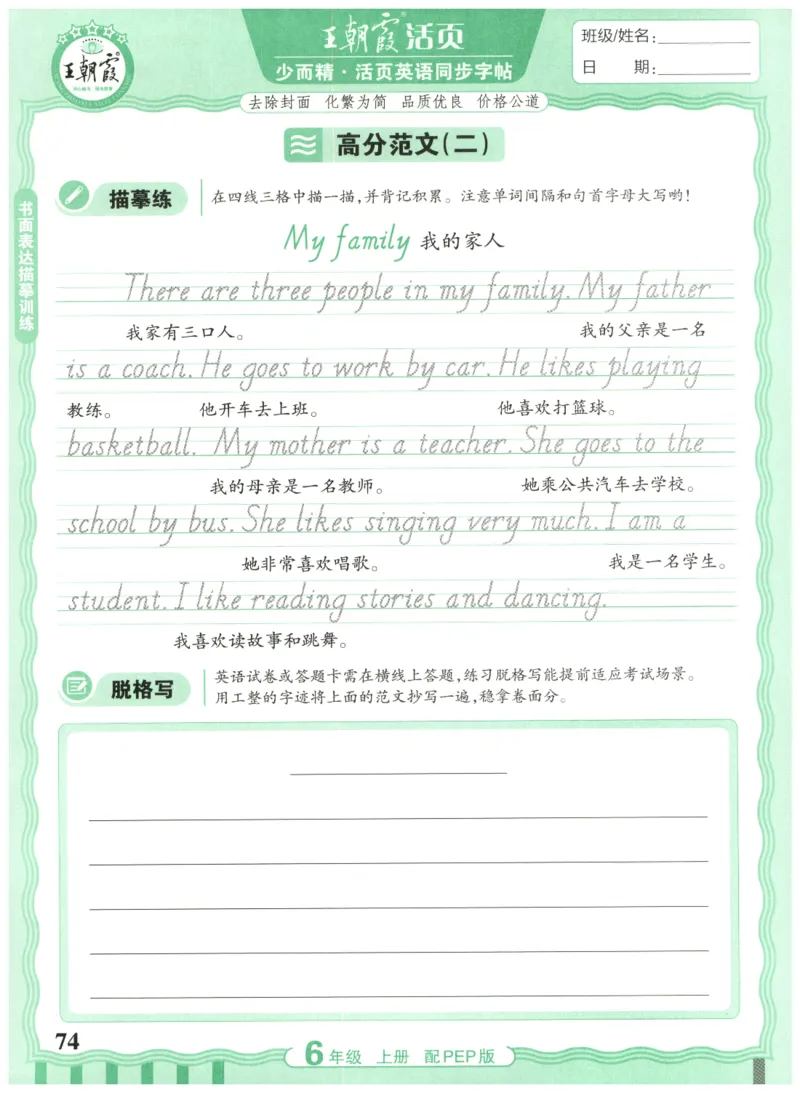 王朝霞
王朝霞®活页
少而精·活页英语同步字帖
班级/姓名:
日 期:
去除封面 化繁为简 品质优良 价格公道
高分范文(二)
书面表达描摹训练
描摹练
在四线三格中描一描,并背记积累。注意单词间隔和句首字母大写哟!
My family 我的家人
There are three people in my family. My father
我家有三口人。 我的父亲是一名
is a coach. He goes to work by car. He likes playing
教练。 他开车去上班。 他喜欢打篮球。
basketball. My mother is a teacher. She goes to the
我的母亲是一名教师。 她乘公共汽车去学校。
school by bus. She likes singing very much. I am a
她非常喜欢唱歌。 我是一名学生。
student. I like reading stories and dancing.
我喜欢读故事和跳舞。
脱格写
英语试卷或答题卡需在横线上答题,练习脱格写能提前适应考试场景。
用工整的字迹将上面的范文抄写一遍,稳拿卷面分。
74
6年级 上册 配PEP版